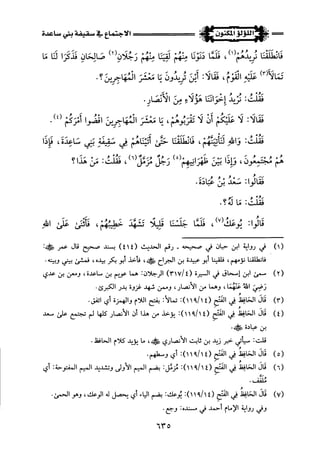 اللؤلؤ المكنون
الاجتماع في سقيفة بني ساعدة
فَانْطَلَقْنَا نُرِيدُهُمْ(١)، فَلَمَّا دَنَوْنَا مِنْهُمْ لَقِيَنَا مِنْهُمْ رَجُلَانِ(٢) صَالِحَانِ فَذَكَرَا لَنَا مَا
تَمَالَأَ(٣) عَلَيْهِ الْقَوْمُ، فَقَالَا: أَيْنَ تُرِيدُونَ يَا مَعْشَرَ الْمُهَاجِرِينَ؟.
فَقُلْتُ: نُرِيدُ إِخْوَانَنَا هَؤُلَاءِ مِنَ الْأَنْصَارِ.
فَقَالَا: لَا عَلَيْكُمْ أَنْ لَا تَقْرَبُوهُمْ، يَا مَعْشَرَ الْمُهَاجِرِينَ اقْضُوا أَمْرَكُمْ(٤).
فَقُلْتُ: وَاللهِ لَنَأْتِيَنَّهُمْ، فَانْطَلَقْنَا حَتَّى أَتَيْنَاهُمْ فِي سَقِيفَةِ بَنِي سَاعِدَةَ، فَإِذَا
هُمْ مُجْتَمِعُونَ، وَإِذَا بَيْنَ ظَهْرَانِيهِمْ(٥) رَجُلٌ مُزَمَّلٌ(٦)، فَقُلْتُ: مَنْ هَذَا؟
فَقَالُوا: سَعْدُ بْنُ عُبَادَةَ.
فَقُلْتُ: مَا لَهُ؟.
قَالُوا: يُوعَكُ(٧)، فَلَمَّا جَلَسْنَا قَلِيلًا تَشَهَّدَ خَطِيبُهُمْ، فَأَثْنَى عَلَى اللهِ
(١) في رواية ابن حبان في صحيحه ـ رقم الحديث (٤١٤) بسند صحيح قال عمر ﷺ:
فانطلقنا نؤمهم، فلقينا أبو عبيدة بن الجراح ﷺ، فأخذ أبو بكر بيده، فمشى بيني وبينه.
(٢) سمى ابن إسحاق في السيرة (٣١٧/٤) الرجلان: هما عويم بن ساعدة، ومعن بن عدي
رَضِيَ اللهُ عَنْهُمَا، وهما من الأنصار، وممن شهد غزوة بدر الكبرى.
(٣) قَالَ الحَافِظُ فِي الفَتْحِ (١١٩/١٤): تمالأ: بفتح اللام والهمزة أي اتفق.
(٤) قَالَ الحَافِظُ فِي الفَتْحِ (١١٩/١٤): يؤخذ من هذا أن الأنصار كلها لم تجتمع على سعد
بن عبادة ﷺ.
قلت: سيأتي خبر زيد بن ثابت الأنصاري ﷺ، ما يؤيد كلام الحافظ.
(٥) قَالَ الحَافِظُ فِي الفَتْحِ (١١٩/١٤): أي وسطهم.
(٦) قَالَ الحَافِظُ فِي الفَتْحِ (١١٩/١٤): مُزَمَّل: بضم الميم الأولى وتشديد الميم المفتوحة: أي
مُلَفَّف.
(٧) قَالَ الحَافِظُ فِي الفَتْحِ (١١٩/١٤): يُوعك: بضم الياء أي يحصل له الوعك، وهو الحمى.
وفي رواية الإمام أحمد في مسنده: وجع.
٦٣٥